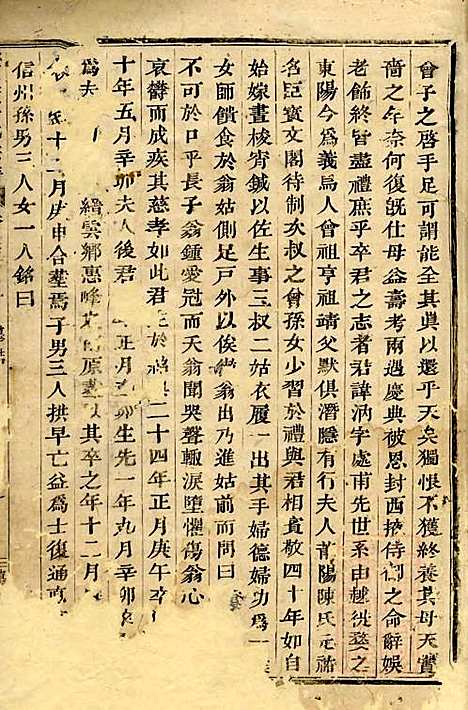 曾子之啓手足可謂能全其眞以還乎天矣獨恨不獲終養其母天實
嗇之年奈何復旣仕母益壽考兩遇慶典被恩封西掖侍制之命辭娛
老餙終皆盡禮庶乎卒君之志者君諱汭字處甫先世系由越徙婺之
東陽今爲義烏人曾祖亨祖靖父默俱潛隱有行夫人前陽陳氏元祐
名臣寳文閣待制次叔之曾孫女少習於禮與君相賔敬四十年如自
始嫁晝梭宵鍼以佐生事三叔二姑衣履一出其手婦德婦功爲一
女師饋食於翁姑側足戶外以俟翁姑出乃進姑前而問曰
不可於口乎長子翁鍾愛冠而夭翁聞哭聲輙淚墮懼傷翁心
哀欝而成疾其慈孝如此君 二十四年正月庚午卒
十年五月辛卯夫人後君 正月 卯生先一年九月辛卯
爲夫 縉雲鄉惠峰 原 以其卒之年十二月
十二月庚申合塟焉子男三人拱早亡益爲士復通直
信州孫男三人女一人銘曰